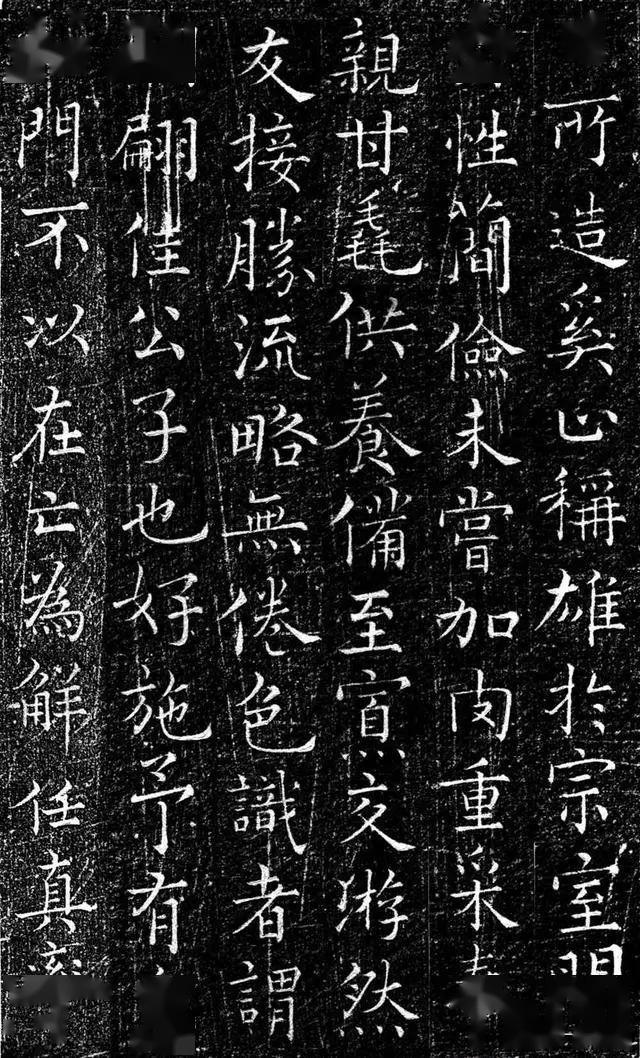 所造奚止稱雄於宗室
性簡儉未嘗加肉重采
親甘毳供養備至寡交游然
友接勝流略無倦色識者謂
翩佳公子也好施予有
門不以在亡為解任真